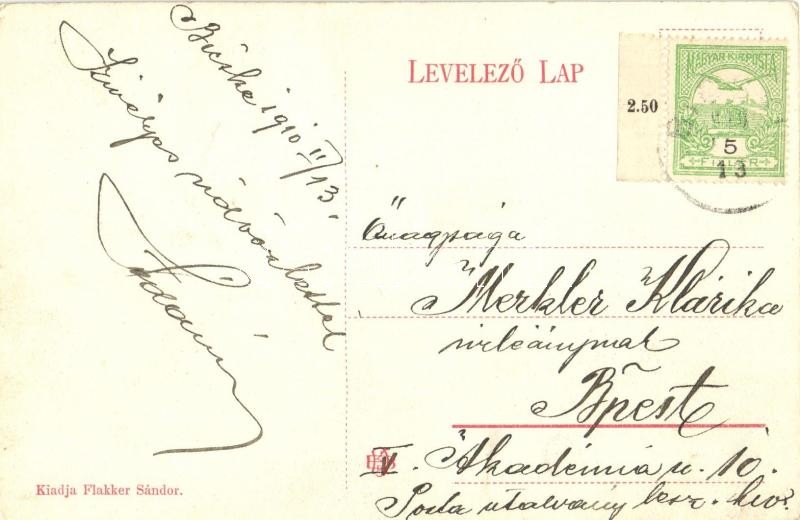 Bicske 1910 II/13
Szivélyes üdvözlettel
Ádám
LEVELEZŐ LAP
2.50
MAGYAR KIR. POSTA
5
FILLÉR
13
Őnagysága
Merkler Klárika
urleánynak
Bpest
V. Akadémia u. 10.
Posta utalvány lesz. hiv.
Kiadja Flakker Sándor.